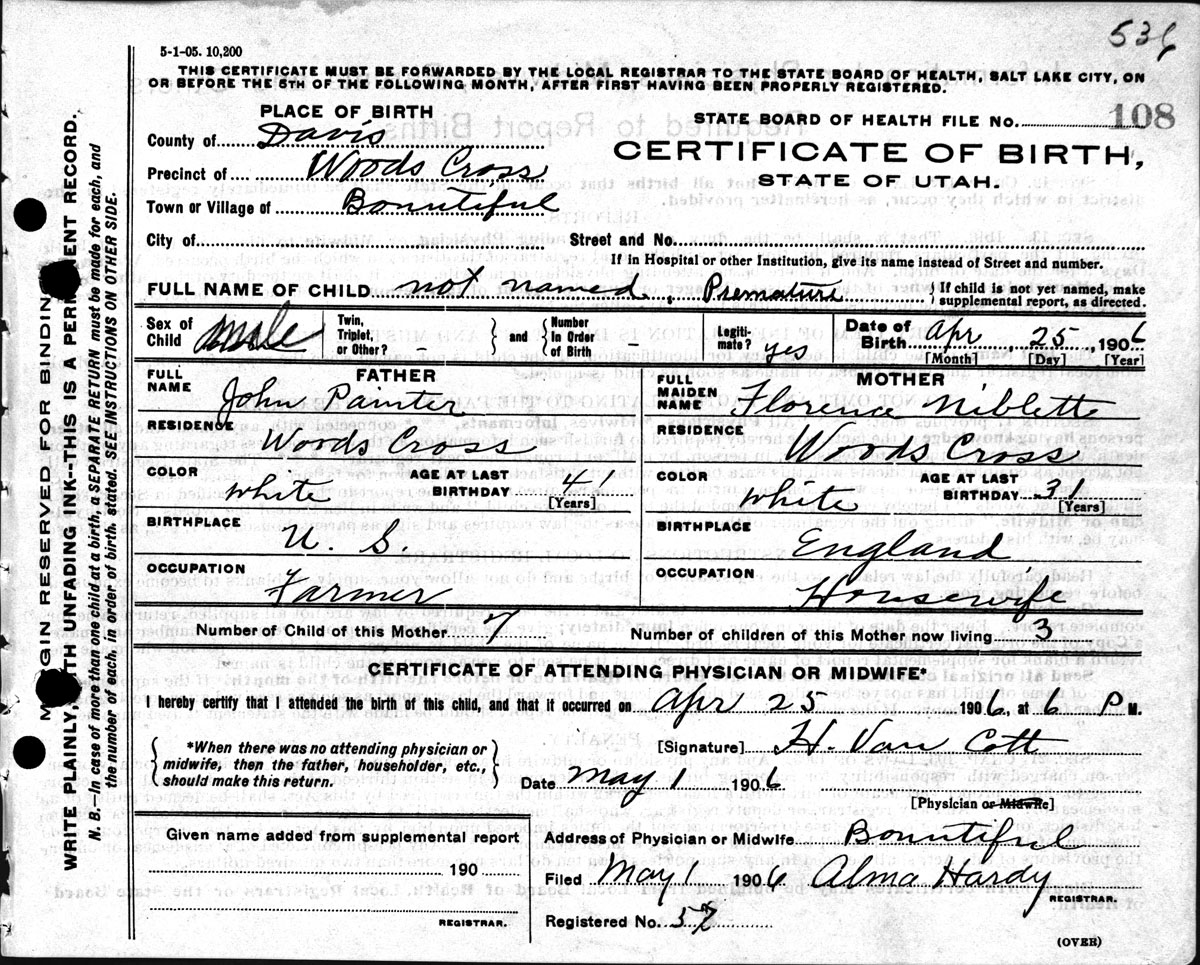 536
5-1-05. 10,200
THIS CERTIFICATE MUST BE FORWARDED BY THE LOCAL REGISTRAR TO THE STATE BOARD OF HEALTH, SALT LAKE CITY, ON
OR BEFORE THE 5TH OF THE FOLLOWING MONTH, AFTER FIRST HAVING BEEN PROPERLY REGISTERED.
PLACE OF BIRTH
STATE BOARD OF HEALTH FILE No. 108
County of Davis
CERTIFICATE OF BIRTH,
Precinct of Woods Cross
STATE OF UTAH.
Town or Village of Bountiful
City of Street and No.
If in Hospital or other Institution, give its name instead of Street and number.
FULL NAME OF CHILD not named, Premature { If child is not yet named, make supplemental report, as directed.
Sex of Child male Twin, Triplet, or Other? } and { Number In Order of Birth - Legitimate? yes Date of Birth Apr, 25, 1906
[Month] [Day] [Year]
FATHER
FULL NAME John Painter
RESIDENCE Woods Cross
COLOR white AGE AT LAST BIRTHDAY 41 [Years]
BIRTHPLACE U. S.
OCCUPATION Farmer
MOTHER
FULL MAIDEN NAME Florence Niblette
RESIDENCE Woods Cross
COLOR white AGE AT LAST BIRTHDAY 31 [Years]
BIRTHPLACE England
OCCUPATION Housewife
Number of Child of this Mother 7 Number of children of this Mother now living 3
CERTIFICATE OF ATTENDING PHYSICIAN OR MIDWIFE*
I hereby certify that I attended the birth of this child, and that it occurred on Apr 25 1906, at 6 P M.
{ *When there was no attending physician or
midwife, then the father, householder, etc.,
should make this return. }
[Signature] H. Van Cott
Date May 1 1906
[Physician or Midwife]
Given name added from supplemental report
190
REGISTRAR.
Address of Physician or Midwife Bountiful
Filed May 1 1906 Alma Hardy
REGISTRAR.
Registered No. 57
(OVER)
MARGIN RESERVED FOR BINDING
WRITE PLAINLY, WITH UNFADING INK--THIS IS A PERMANENT RECORD.
N. B.—In case of more than one child at a birth, a SEPARATE RETURN must be made for each, and
the number of each, in order of birth, stated. SEE INSTRUCTIONS ON OTHER SIDE.